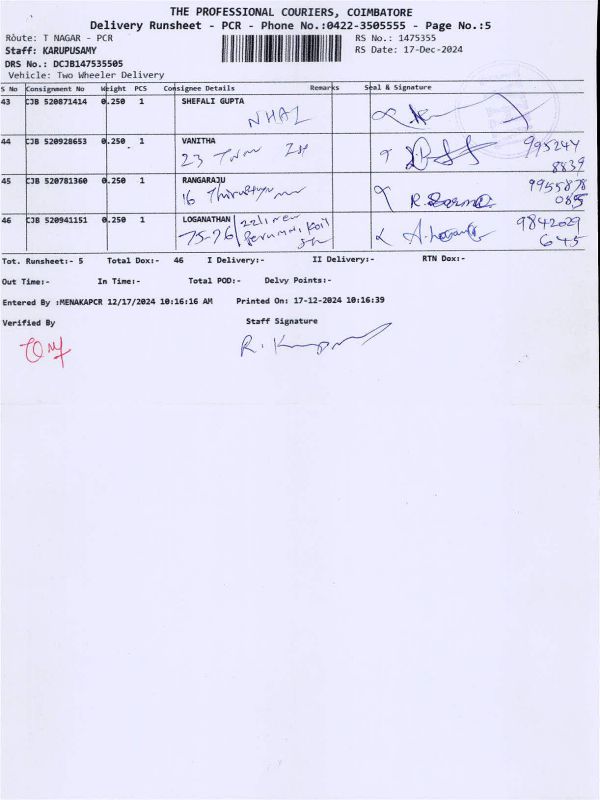 THE PROFESSIONAL COURIERS, COIMBATORE
Delivery Runsheet - PCR - Phone No.:0422-3505555 - Page No.:5
Route: T NAGAR - PCR
RS No.: 1475355
Staff: KARUPUSAMY
RS Date: 17-Dec-2024
DRS No.: DCJB147535505
Vehicle: Two Wheeler Delivery
S No Consignment No Weight PCS Consignee Details Remarks Seal & Signature
43 CJB 520871414 0.250 1 SHEFALI GUPTA
44 CJB 520928653 0.250 1 VANITHA
23
995244
8839
45 CJB 520781360 0.250 1 RANGARAJU
16
9955878
46 CJB 520941151 0.250 1 LOGANATHAN
75-76
9842029
645
Tot. Runsheet:- 5 Total Dox:- 46 I Delivery:- II Delivery:- RTN Dox:-
Out Time:- In Time:- Total POD:- Delvy Points:-
Entered By :MENAKAPCR 12/17/2024 10:16:16 AM Printed On: 17-12-2024 10:16:39
Verified By Staff Signature